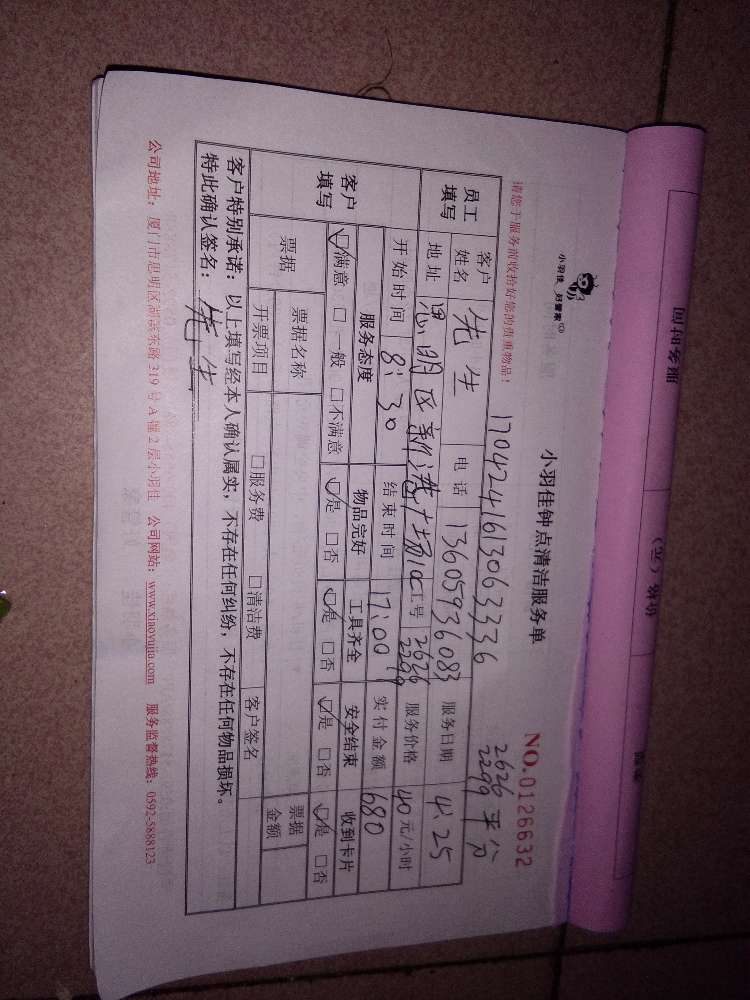 小羽佳 好管家
小羽佳钟点清洁服务单
NO.0126632
请您于服务前收拾好您的贵重物品!
1704241613063336
2626 平分
2299
员工填写 客户姓名 先生 电话 13605936083 服务日期 4.25
地址 思明区 工号 2626 2299 服务价格 40元/小时
开始时间 8:30 结束时间 17:00 实付金额 680
客户填写 服务态度 物品完好 工具齐全 安全结束 收到卡片
☑满意 □一般 □不满意 ☑是 □否 ☑是 □否 ☑是 □否 ☑是 □否
票据 票据名称 票据金额
开票项目 □服务费 □清洁费 客户签名
客户特别承诺:以上填写经本人确认属实,不存在任何纠纷,不存在任何物品损坏。
特此确认签名: 先生
公司地址:厦门市思明区湖滨东路319号A幢2层小羽佳 公司网站:www.xiaoyujia.com 服务监督热线:0592-5888123